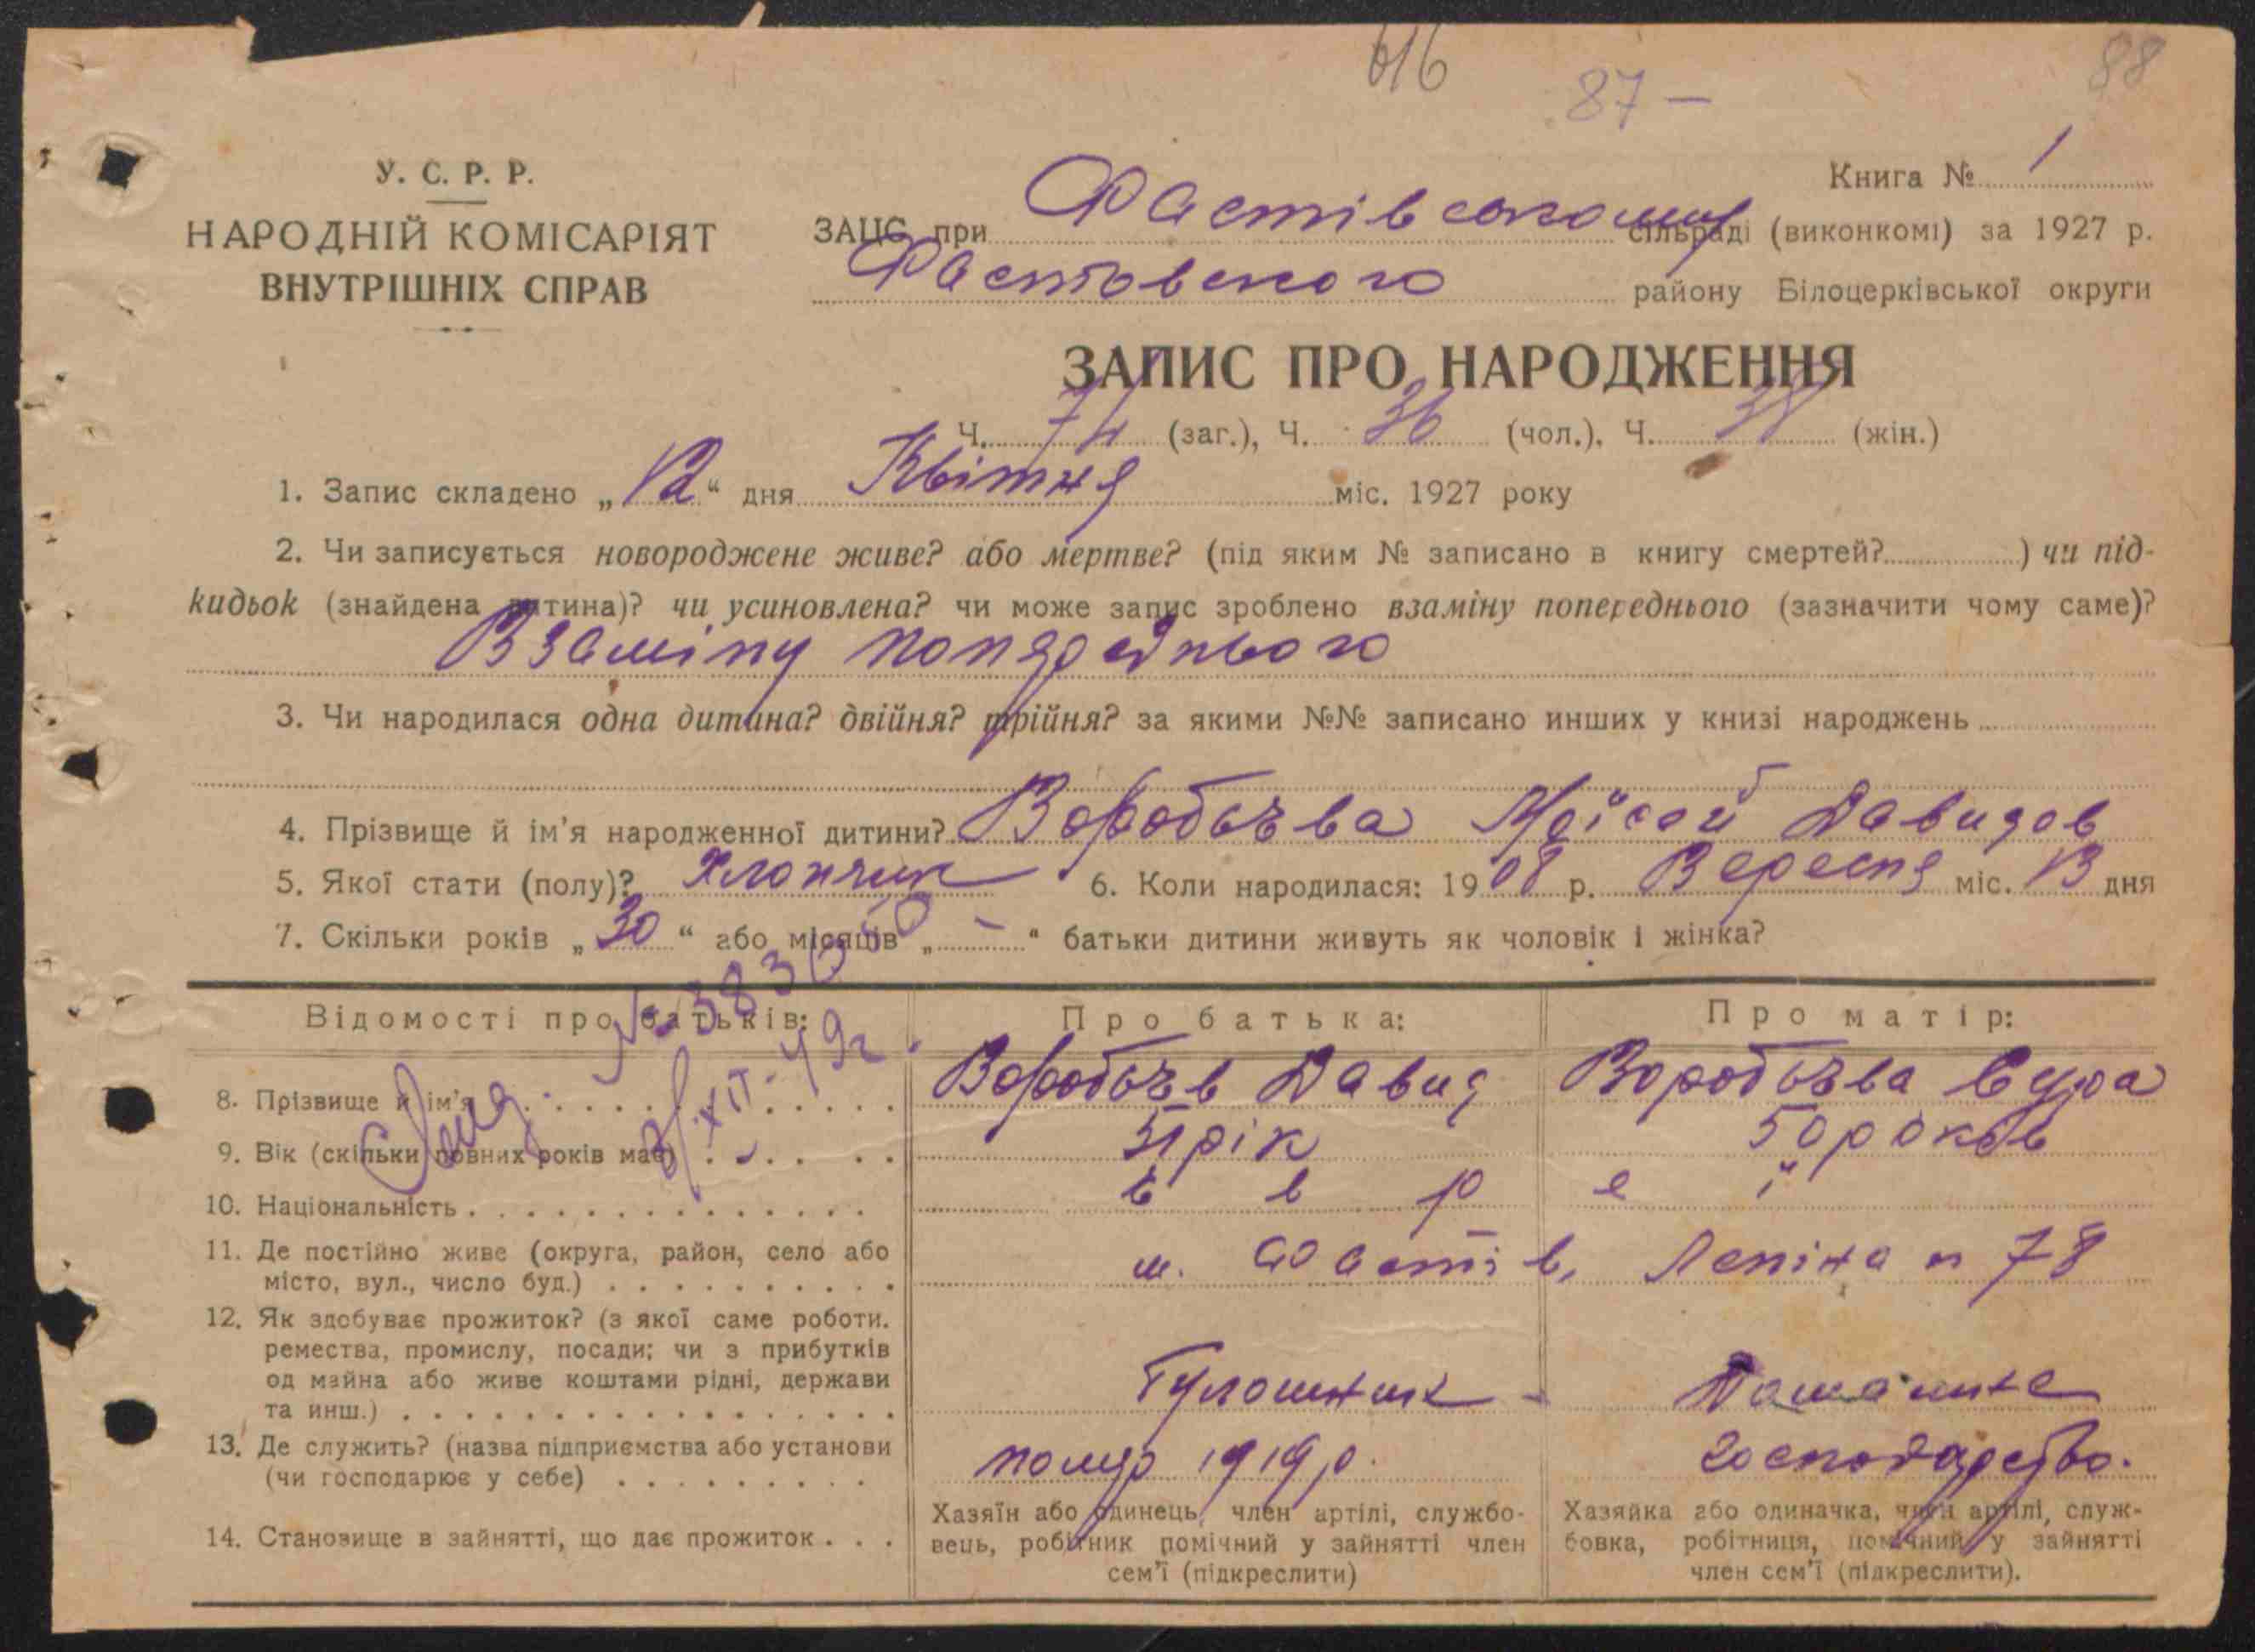 616
87 —
88
У. С. Р. Р.
НАРОДНІЙ КОМІСАРІЯТ
ВНУТРІШНІХ СПРАВ
Книга № 1
ЗАЦС при Фастівському сільраді (виконкомі) за 1927 р.
Фастовского району Білоцерківської округи
ЗАПИС ПРО НАРОДЖЕННЯ
Ч. 74 (заг.), Ч. 36 (чол.), Ч. 38 (жін.)
1. Запис складено „12“ дня Квітня міс. 1927 року
2. Чи записується новороджене живе? або мертве? (під яким № записано в книгу смертей? ) чи під-
кидьок (знайдена дитина)? чи усиновлена? чи може запис зроблено взаміну попереднього (зазначити чому саме)?
Взаміну попяреднього
3. Чи народилася одна дитина? двійня? трійня? за якими №№ записано инших у книзі народжень
4. Прізвище й ім'я народженної дитини? Воробьёва Моїсей Давидов
5. Якої стати (полу)? Хлопчик 6. Коли народилася: 1908 р. Вересня міс. 13 дня
7. Скільки років „30“ або місяців „—“ батьки дитини живуть як чоловік і жінка?
Відомості про батьків: Про батька: Про матір:
8. Прізвище й ім'я Воробьёв Давид Воробьёва Сура
9. Вік (скільки повних років має) 51 рік 50 років
10. Національність є в р е ї
11. Де постійно живе (округа, район, село або
місто, вул., число буд.) м. Фастів, Леніна № 78
12. Як здобуває прожиток? (з якої саме роботи.
ремества, промислу, посади; чи з прибутків
од майна або живе коштами рідні, держави
та инш.) Домашнє
13. Де служить? (назва підприємства або установи
(чи господарює у себе) помер 1919 р. господарство.
14. Становище в зайнятті, що дає прожиток
Хазяїн або одинець, член артілі, службо-
вець, робітник помічний у зайнятті член
сем'ї (підкреслити)
Хазяйка або одиначка, член артілі, служ-
бовка, робітниця, помічний у зайнятті
член сем'ї (підкреслити).